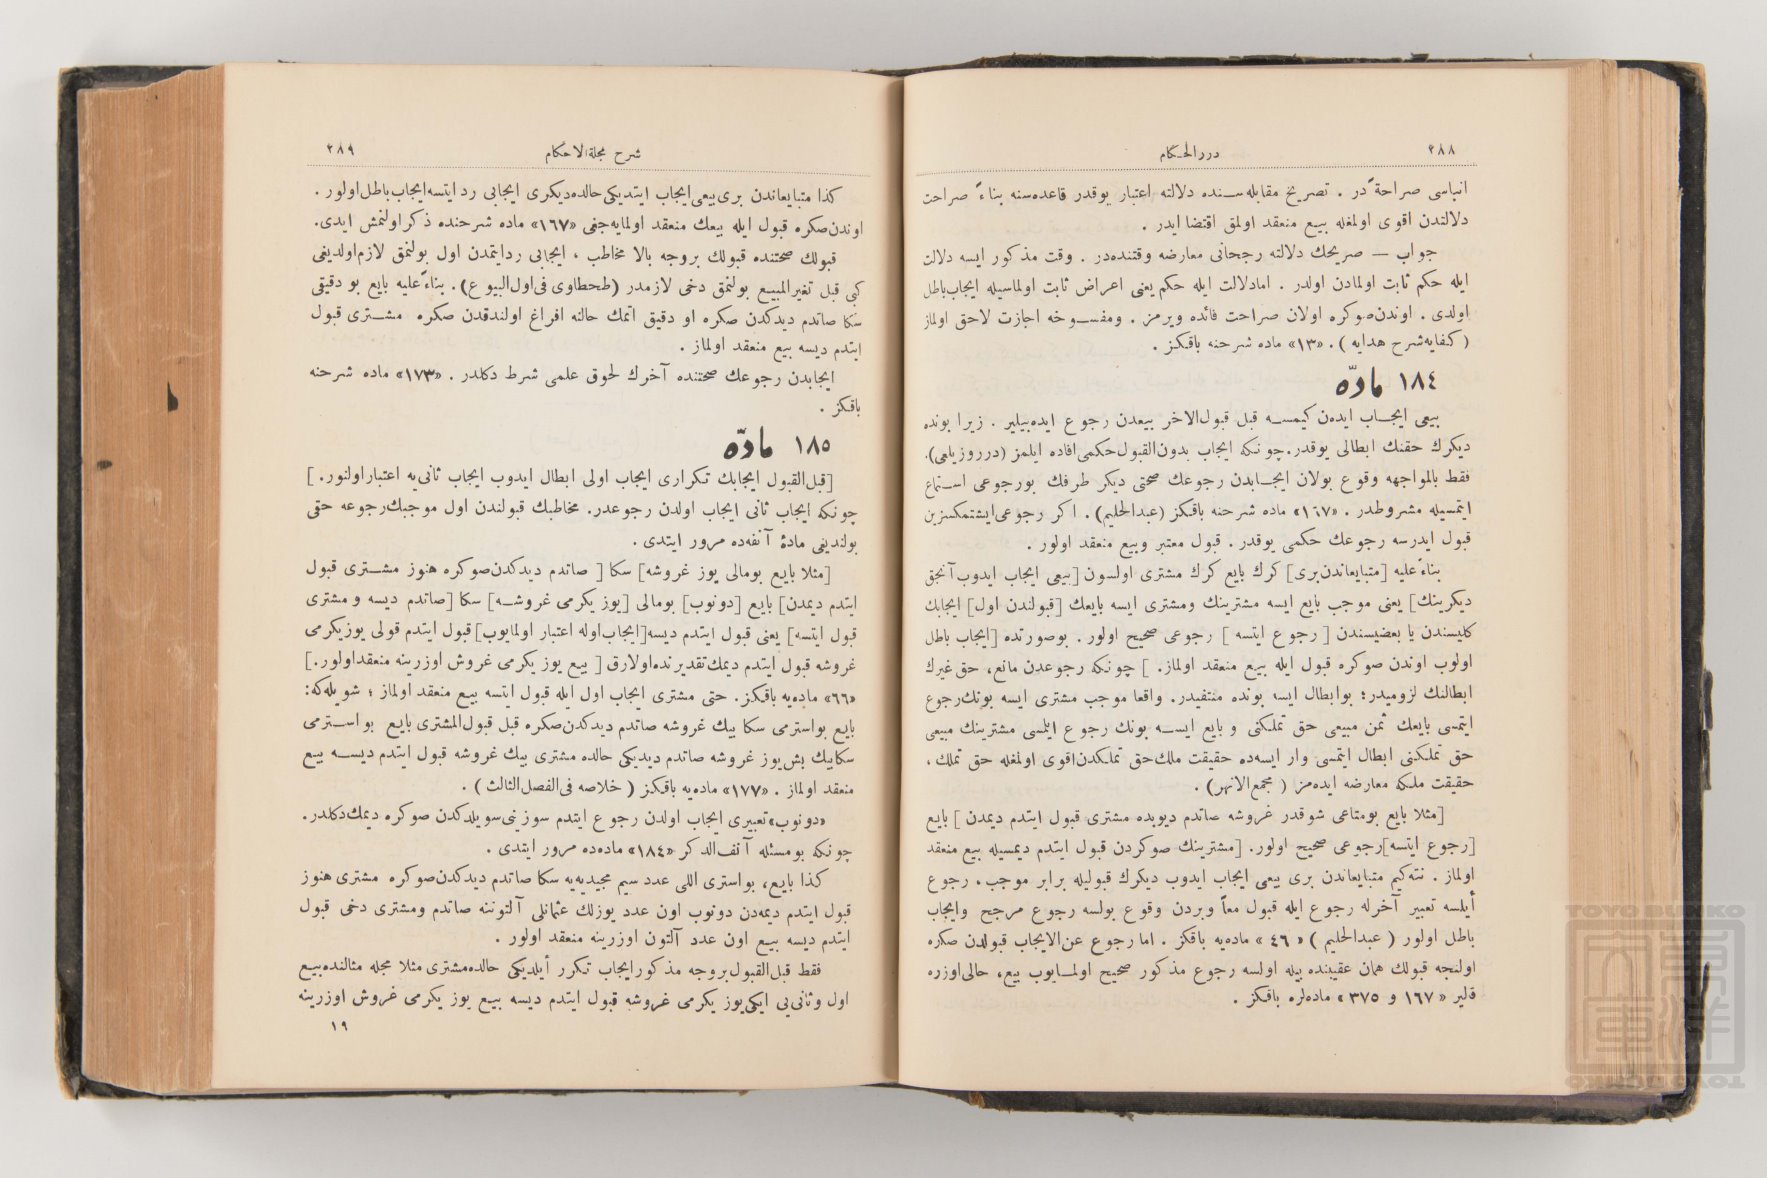 ٢٨٨
دررالحكام
انباسى صراحةً در . تصريح مقابله سنده دلالته اعتبار يوقدر قاعده سنه بناءً صراحت
دلالتدن اقوى اولمغله بيع منعقد اولمق اقتضا ايدر .
جواب — صريحك دلالته رجحانى معارضه وقتنده در . وقت مذكور ايسه دلالت
ايله حكم ثابت اولمادن اولدر . امادلالت ايله حكم يعنى اعراض ثابت اولماسيله ايجاب باطل
اولدى . اوندن صوكره اولان صراحت فائده ويرمز . ومفسوخه اجازت لاحق اولماز
( كفايه شرح هدايه ) . «١٣» ماده شرحنه باقكز .
١٨٤ مادّه
بيعى ايجاب ايدەن كيمسه قبل قبول الاخر بيعدن رجوع ايده بيلير . زيرا بونده
ديكرك حقنك ابطالى يوقدر. چونكه ايجاب بدون القبول حكمى افاده ايلمز (درر وزيلعى).
فقط بالمواجهه وقوع بولان ايجابدن رجوعك صحتى ديكر طرفك بورجوعى استماع
ايتمسيله مشروطدر . «١٦٧» ماده شرحنه باقكز (عبدالحليم) . اكر رجوعى ايشتمكسزين
قبول ايدرسه رجوعك حكمى يوقدر . قبول معتبر وبيع منعقد اولور .
بناءً عليه [متبايعاندن برى] كرك بايع كرك مشترى اولسون [بيعى ايجاب ايدوب آنجق
ديكرينك] يعنى موجب بايع ايسه مشترينك ومشترى ايسه بايعك [قبولندن اول] ايجابك
كليسندن يا بعضيسندن [ رجوع ايتسه ] رجوعى صحيح اولور . بوصورتده [ايجاب باطل
اولوب اوندن صوكره قبول ايله بيع منعقد اولماز. ] چونكه رجوعدن مانع، حق غيرك
ابطالنك لزوميدر؛ بوابطال ايسه بونده منتفيدر. واقعا موجب مشترى ايسه بونك رجوع
ايتمسى بايعك ثمن مبيعى حق تملكنى و بايع ايسه بونك رجوع ايلمسى مشترينك مبيعى
حق تملكنى ابطال ايتمسى وار ايسه ده حقيقت ملك حق تملكدن اقوى اولمغله حق تملك ،
حقيقت ملكه معارضه ايده مز ( مجمع الانهر) .
[مثلا بايع بومتاعى شوقدر غروشه صاتدم ديوبده مشترى قبول ايتدم ديمدن ] بايع
[رجوع ايتسه] رجوعى صحيح اولور. [مشترينك صوكردن قبول ايتدم ديمسيله بيع منعقد
اولماز . نته كيم متبايعاندن برى بيعى ايجاب ايدوب ديكرك قبوليله برابر موجب، رجوع
ايلسه تعبير آخرله رجوع ايله قبول معاً وبردن وقوع بولسه رجوع مرجح وايجاب
باطل اولور ( عبدالحليم ) « ٤٦ » ماده يه باقكز . اما رجوع عن الايجاب قبولدن صكره
اولنجه قبولك همان عقيبنده بيله اولسه رجوع مذكور صحيح اولمايوب بيع، حالى اوزره
قلير « ١٦٧ و ٣٧٥ » ماده لره باقكز .
شرح مجلة الاحكام
٢٨٩
كذا متبايعاندن برى بيعى ايجاب ايتديكى حالده ديكرى ايجابى رد ايتسه ايجاب باطل اولور .
اوندن صكره قبول ايله بيعك منعقد اولمايه جغى «١٦٧» ماده شرحنده ذكر اولنمش ايدى.
قبولك صحتنده قبولك بروجه بالا مخاطب ، ايجابى ردايتمدن اول بولنمق لازم اولديغى
كبى قبل تغير المبيع بولنمق دخى لازمدر (طحطاوى فى اول البيوع) . بناءً عليه بايع بو دقيقى
سكا صاتدم ديدكدن صكره او دقيق اتمك حالنه افراغ اولندقدن صكره مشترى قبول
ايتدم ديسه بيع منعقد اولماز .
ايجابدن رجوعك صحتنده آخرك لحوق علمى شرط دكلدر . «١٧٣» ماده شرحنه
باقكز .
١٨٥ مادّه
[قبل القبول ايجابك تكرارى ايجاب اولى ابطال ايدوب ايجاب ثانى يه اعتبار اولنور. ]
چونكه ايجاب ثانى ايجاب اولدن رجوعدر. مخاطبك قبولندن اول موجبك رجوعه حقى
بولنديغى مادۀ آنفه ده مرور ايتدى .
[مثلا بايع بومالى يوز غروشه] سكا [ صاتدم ديدكدن صوكره هنوز مشترى قبول
ايتدم ديمدن] بايع [دونوب] بومالى [يوز يكرمى غروشه] سكا [صاتدم ديسه و مشترى
قبول ايتسه] يعنى قبول ايتدم ديسه [ايجاب اوله اعتبار اولمايوب] قبول ايتدم قولى يوز يكرمى
غروشه قبول ايتدم ديمك تقديرنده اولارق [ بيع يوز يكرمى غروش اوزرينه منعقد اولور. ]
«٦٦» ماده يه باقكز. حتى مشترى ايجاب اول ايله قبول ايتسه بيع منعقد اولماز ؛ شويله كه:
بايع بواسترى سكا بيك غروشه صاتدم ديدكدن صكره قبل قبول المشترى بايع بو استرى
سكا بيك بش يوز غروشه صاتدم ديديكى حالده مشترى بيك غروشه قبول ايتدم ديسه بيع
منعقد اولماز . «١٧٧» ماده يه باقكز ( خلاصه فى الفصل الثالث ) .
«دونوب» تعبيرى ايجاب اولدن رجوع ايتدم سوزينى سويلدكدن صوكره ديمك دكلدر.
چونكه بومسئله آنف الذكر «١٨٤» ماده ده مرور ايتدى .
كذا بايع، بواسترى اللى عدد سيم مجيديه يه سكا صاتدم ديدكدن صوكره مشترى هنوز
قبول ايتدم ديمه دن دونوب اون عدد يوزلك عثمانلى آلتوننه صاتدم ومشترى دخى قبول
ايتدم ديسه بيع اون عدد آلتون اوزرينه منعقد اولور .
فقط قبل القبول بروجه مذكور ايجاب تكرر ايلديكى حالده مشترى مثلا مجله مثالنده بيع
اول وثانى يى ايكى يوز يكرمى غروشه قبول ايتدم ديسه بيع يوز يكرمى غروش اوزرينه
١٩
TOYO BUNKO